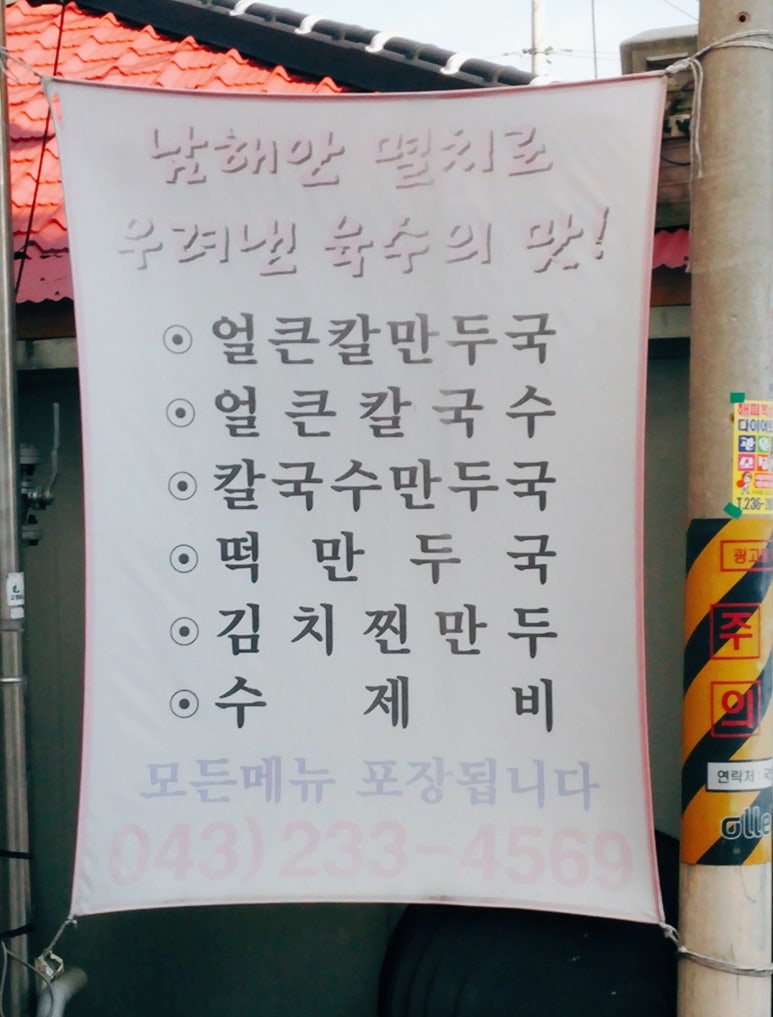 남해안 멸치로
우려낸 육수의 맛!
⊙ 얼큰칼만두국
⊙ 얼큰칼국수
⊙ 칼국수만두국
⊙ 떡만두국
⊙ 김치찐만두
⊙ 수제비
모든메뉴 포장됩니다
043)233-4569
주
의
연락처 :
olle